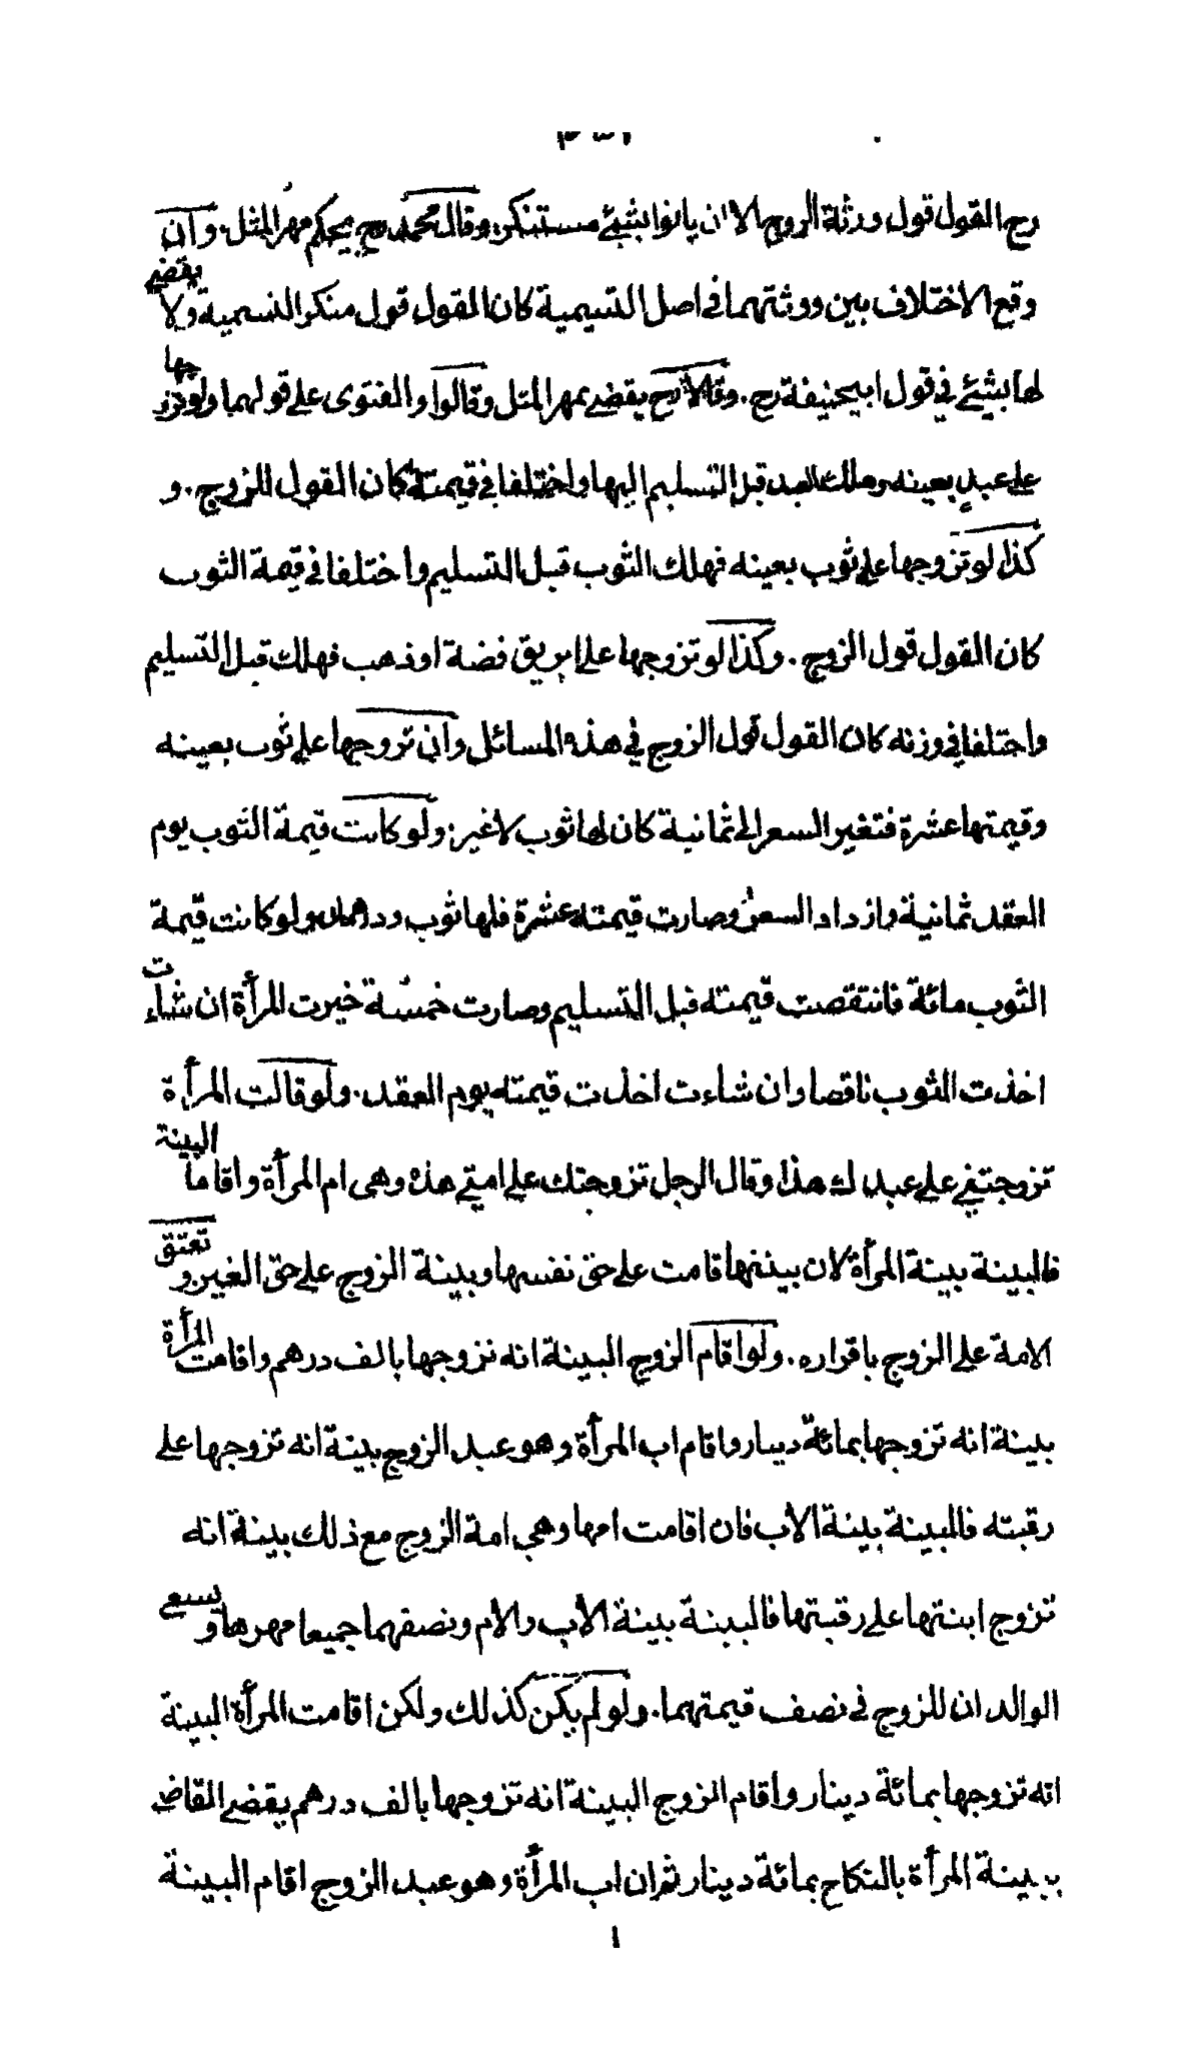 رح القول قول ورثة الزوج الا ان ياتوا بشئ مستنكر وقال محمد رح يحكم مهر المثل. وان
وقع الاختلاف بين وورثتهما في اصل التسمية كان القول قول منكر التسمية ولا يقضي
لها بشئ في قول ابيحنيفة رح. وقالا رح يقضى بمهر المثل وقالوا والفتوى على قولهما ولو تزوجها
على عبد بعينه وهلك العبد قبل التسليم اليها واختلفا في قيمته كان القول للزوج. و
كذا لو تزوجها على ثوب بعينه فهلك الثوب قبل التسليم واختلفا في قيمة الثوب
كان القول قول الزوج. وكذا لو تزوجها على ابريق فضة او ذهب فهلك قبل التسليم
واختلفا في وزنه كان القول قول الزوج في هذه المسائل وان تزوجها على ثوب بعينه
وقيمتها عشرة فتغير السعر الى ثمانية كان لها ثوب لاغير: ولو كانت قيمة الثوب يوم
العقد ثمانية وازداد السعر وصارت قيمته عشرة فلها ثوب ودرهمان ولو كانت قيمة
الثوب مائة فانتقصت قيمته قبل التسليم وصارت خمسة خيرت المرأة ان شاءت
اخذت الثوب ناقصا وان شاءت اخذت قيمته يوم العقد. ولو قالت المرأة
تزوجتني على عبدك هذا وقال الرجل تزوجتك على امتي هذه وهى ام المرأة واقاما البينة
فالبينة بينة المرأة لان بينتها قامت على حق نفسها وبينة الزوج على حق الغير. و تعتق
الامة على الزوج باقراره. ولو اقام الزوج البينة انه تزوجها بالف درهم واقامت المرأة
بينة انه تزوجها بمائة دينار واقام اب المرأة وهو عبد الزوج بينة انه تزوجها على
رقبته فالبينة بينة الأب فان اقامت امها وهي امة الزوج مع ذلك بينة انه
تزوج ابنتها على رقبتها فالبينة بينة الأب والأم ونصفهما جميعا مهرها و يسعى
الوالدان للزوج في نصف قيمتهما. ولو لم يكن كذلك ولكن اقامت المرأة البينة
انه تزوجها بمائة دينار واقام الزوج البينة انه تزوجها بالف درهم يقضى القاضى
ببينة المرأة بالنكاح بمائة دينار ثم ان اب المرأة وهو عبد الزوج اقام البينة